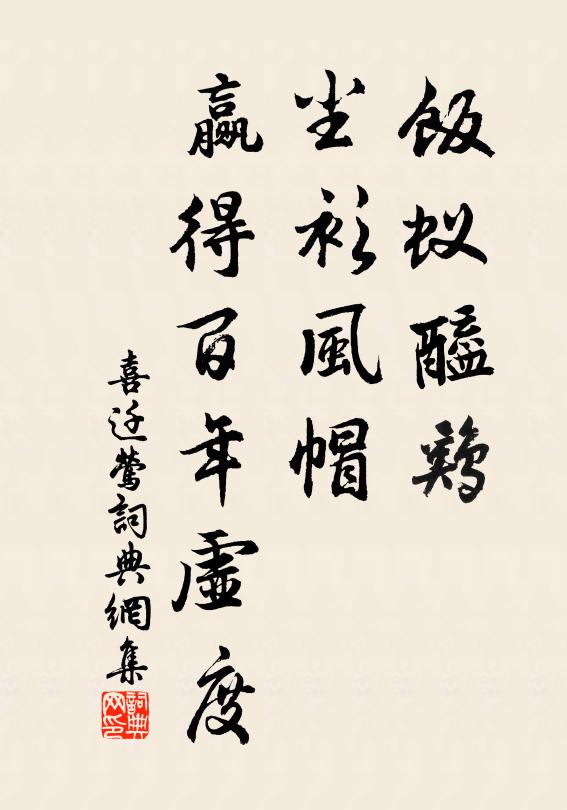 飯蚁醯鷄
尘衫風帽
贏得百年虛度
喜迁鶯詞典網集
詞典网印